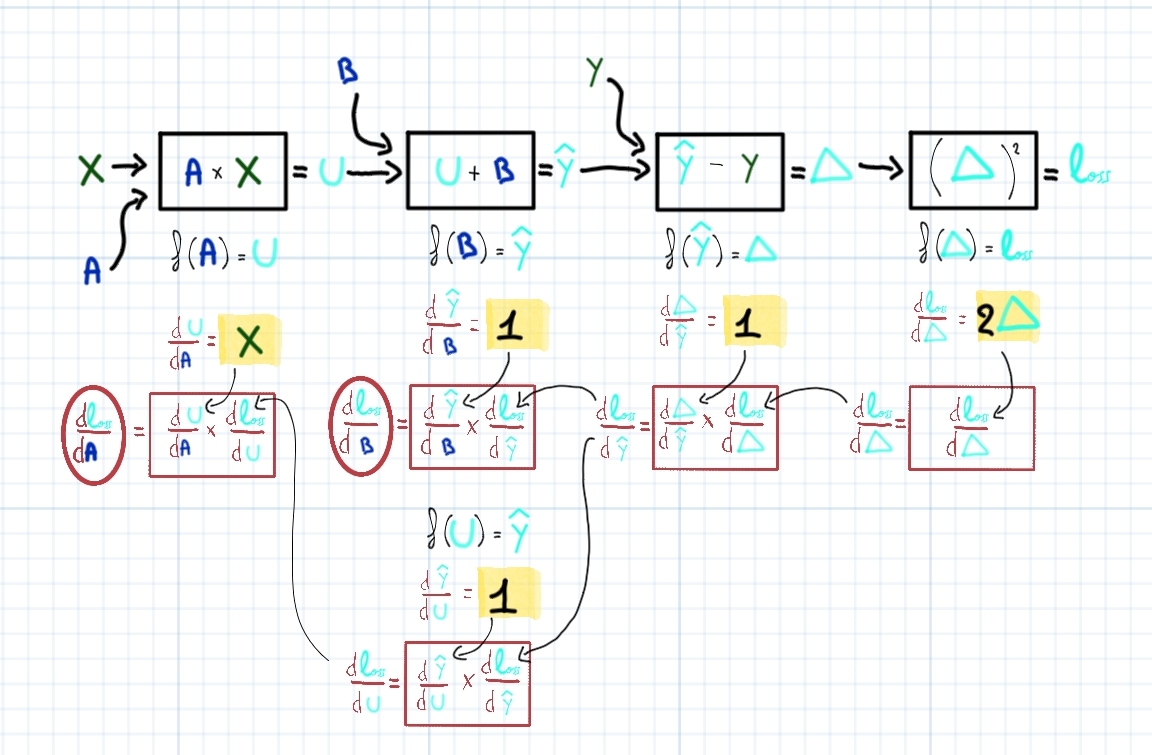 B Y
X A × X = U U + B = Ŷ Ŷ - Y = Δ (Δ)² = loss
A f(A) = U f(B) = Ŷ f(Ŷ) = Δ f(Δ) = loss
dU/dA = X dŶ/dB = 1 dΔ/dŶ = 1 dloss/dΔ = 2Δ
dloss/dA = dU/dA × dloss/dU dloss/dB = dŶ/dB × dloss/dŶ dloss/dŶ = dΔ/dŶ × dloss/dΔ dloss/dΔ = dloss/dΔ
f(U) = Ŷ
dŶ/dU = 1
dloss/dU = dŶ/dU × dloss/dŶ